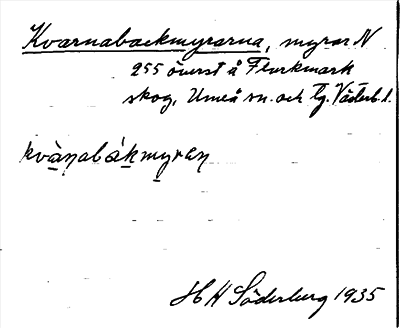 Kvarnabackmyrarna, myrar N
255 överst å Flurkmark
skog, Umeå sn. och tg. Västerb. l.
kvànabákmyren
H H Söderberg 1935